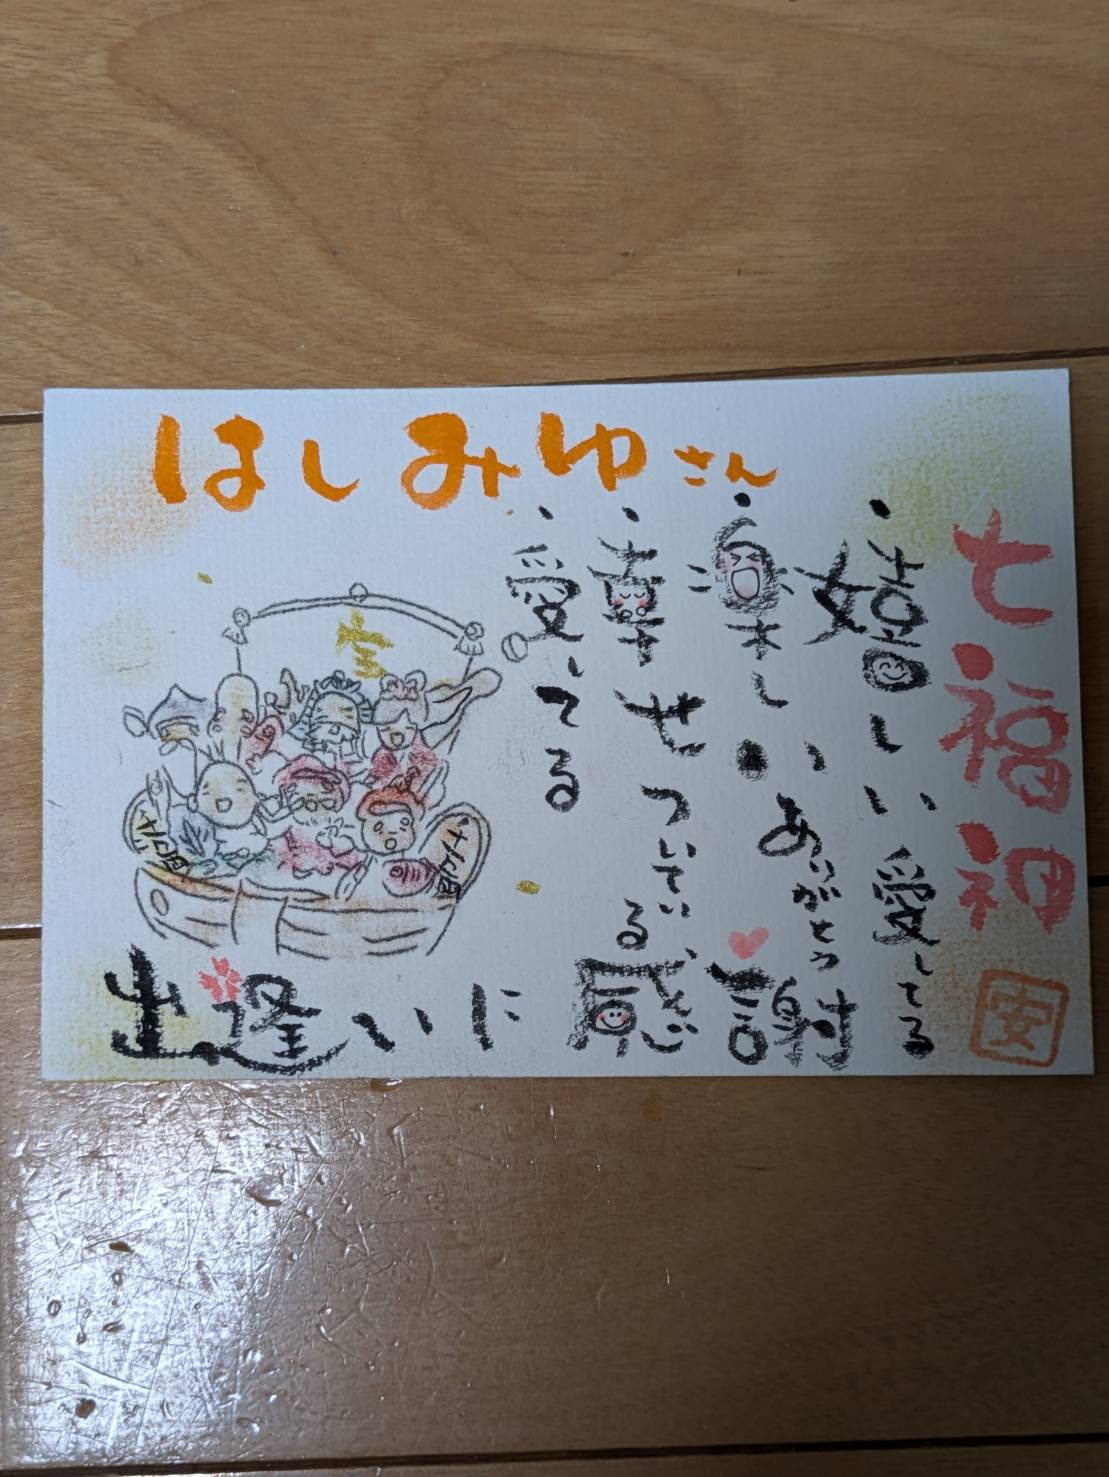 はしみゆさん
七福神
安
・嬉しい愛してる
・楽しいありがとう
・幸せついている
・愛してる
宝
出逢いに感謝